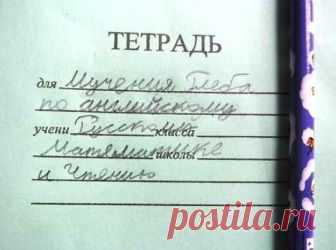 ТЕТРАДЬ
для Мучения Глеба
по английскому
учени Русскому класса
Матяматике школы
и Чтению
postila.ru